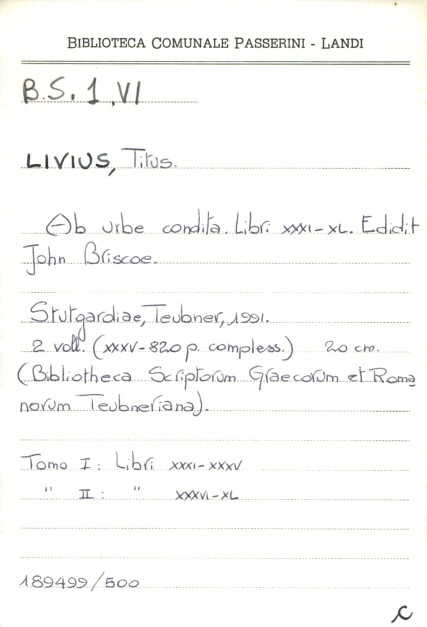 BIBLIOTECA COMUNALE PASSERINI - LANDI
B.S. 1, VI
LIVIUS, Titus.
Ab urbe condita. Libri XXXI-XL. Edidit
John Briscoe.
Stutgardiae, Teubner, 1991.
2 voll. (XXXV-820 p. compless.) 20 cm.
(Bibliotheca Scriptorum Graecorum et Roma
norum Teubneriana).
Tomo I: Libri XXXI-XXXV
" II: " XXXVI-XL
189499/500
C